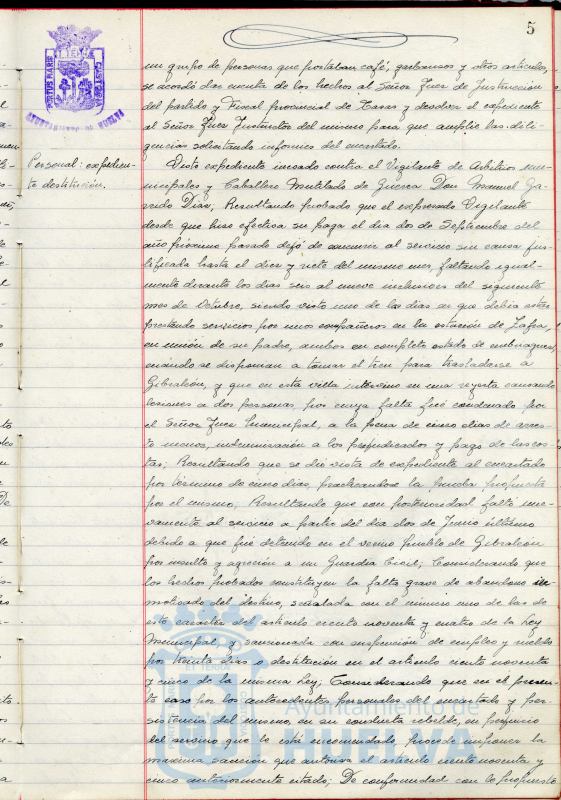 5
PORTUS MARIS
ET TERRAE
CUSTODIA
AYUNTAMIENTO DE HUELVA
un grupo de personas que portaban café, garbanzos y otros artículos,
se acordó dar cuenta de los hechos al Señor Juez de Instrucción
del partido y Fiscal provincial de Tasas y devolver el expediente
al Señor Juez Instructor del mismo para que amplie las dili-
gencias solicitando informes del encartado.
Personal: expedien-
te destitución.
Visto expediente incoado contra el Vigilante de Arbitrios mu-
nicipales y Caballero Mutilado de Guerra Don Manuel Ga-
rrido Díaz; Resultando probado que el expresado Vigilante
desde que hizo efectiva su paga el día dos de Septiembre del
año próximo pasado dejó de concurrir al servicio sin causa jus-
tificada hasta el diez y siete del mismo mes, faltando igual-
mente durante los días seis al nueve inclusives del siguiente
mes de Octubre, siendo visto uno de los días en que debía estar
prestando servicios por unos compañeros en la estación de Zafra,
en unión de su padre, ambos en completo estado de embriaguez,
cuando se disponían a tomar el tren para trasladarse a
Gibraleón, y que en esta villa intervino en una reyerta causando
lesiones a dos personas, por cuya falta fué condenado por
el Señor Juez Municipal, a la pena de cinco días de arres-
to menor, indemnización a los perjudicados y pago de las cos-
tas; Resultando que se dio vista de expediente al encartado
por término de cinco días, practicándose la prueba propuesta
por el mismo; Resultando que con posterioridad faltó nue-
vamente al servicio a partir del día dos de Junio último
debido a que fué detenido en el vecino pueblo de Gibraleón
por insulto y agresión a un Guardia Civil; Considerando que
los hechos probados constituyen la falta grave de abandono in-
motivado del destino, señalada con el número uno de las de
este carácter del artículo ciento noventa y cuatro de la Ley
Municipal y sancionada con suspensión de empleo y sueldo
por treinta días o destitución en el artículo ciento noventa
y cinco de la misma Ley; Considerando que en el presen-
te caso por los antecedentes personales del encartado y per-
sistencia del mismo, en su conducta rebelde, en perjuicio
del servicio que le está encomendado procede imponer la
máxima sanción que autoriza el artículo ciento noventa y
cinco anteriormente citado; De conformidad con lo propuesto
Ayuntamiento de
HUELVA